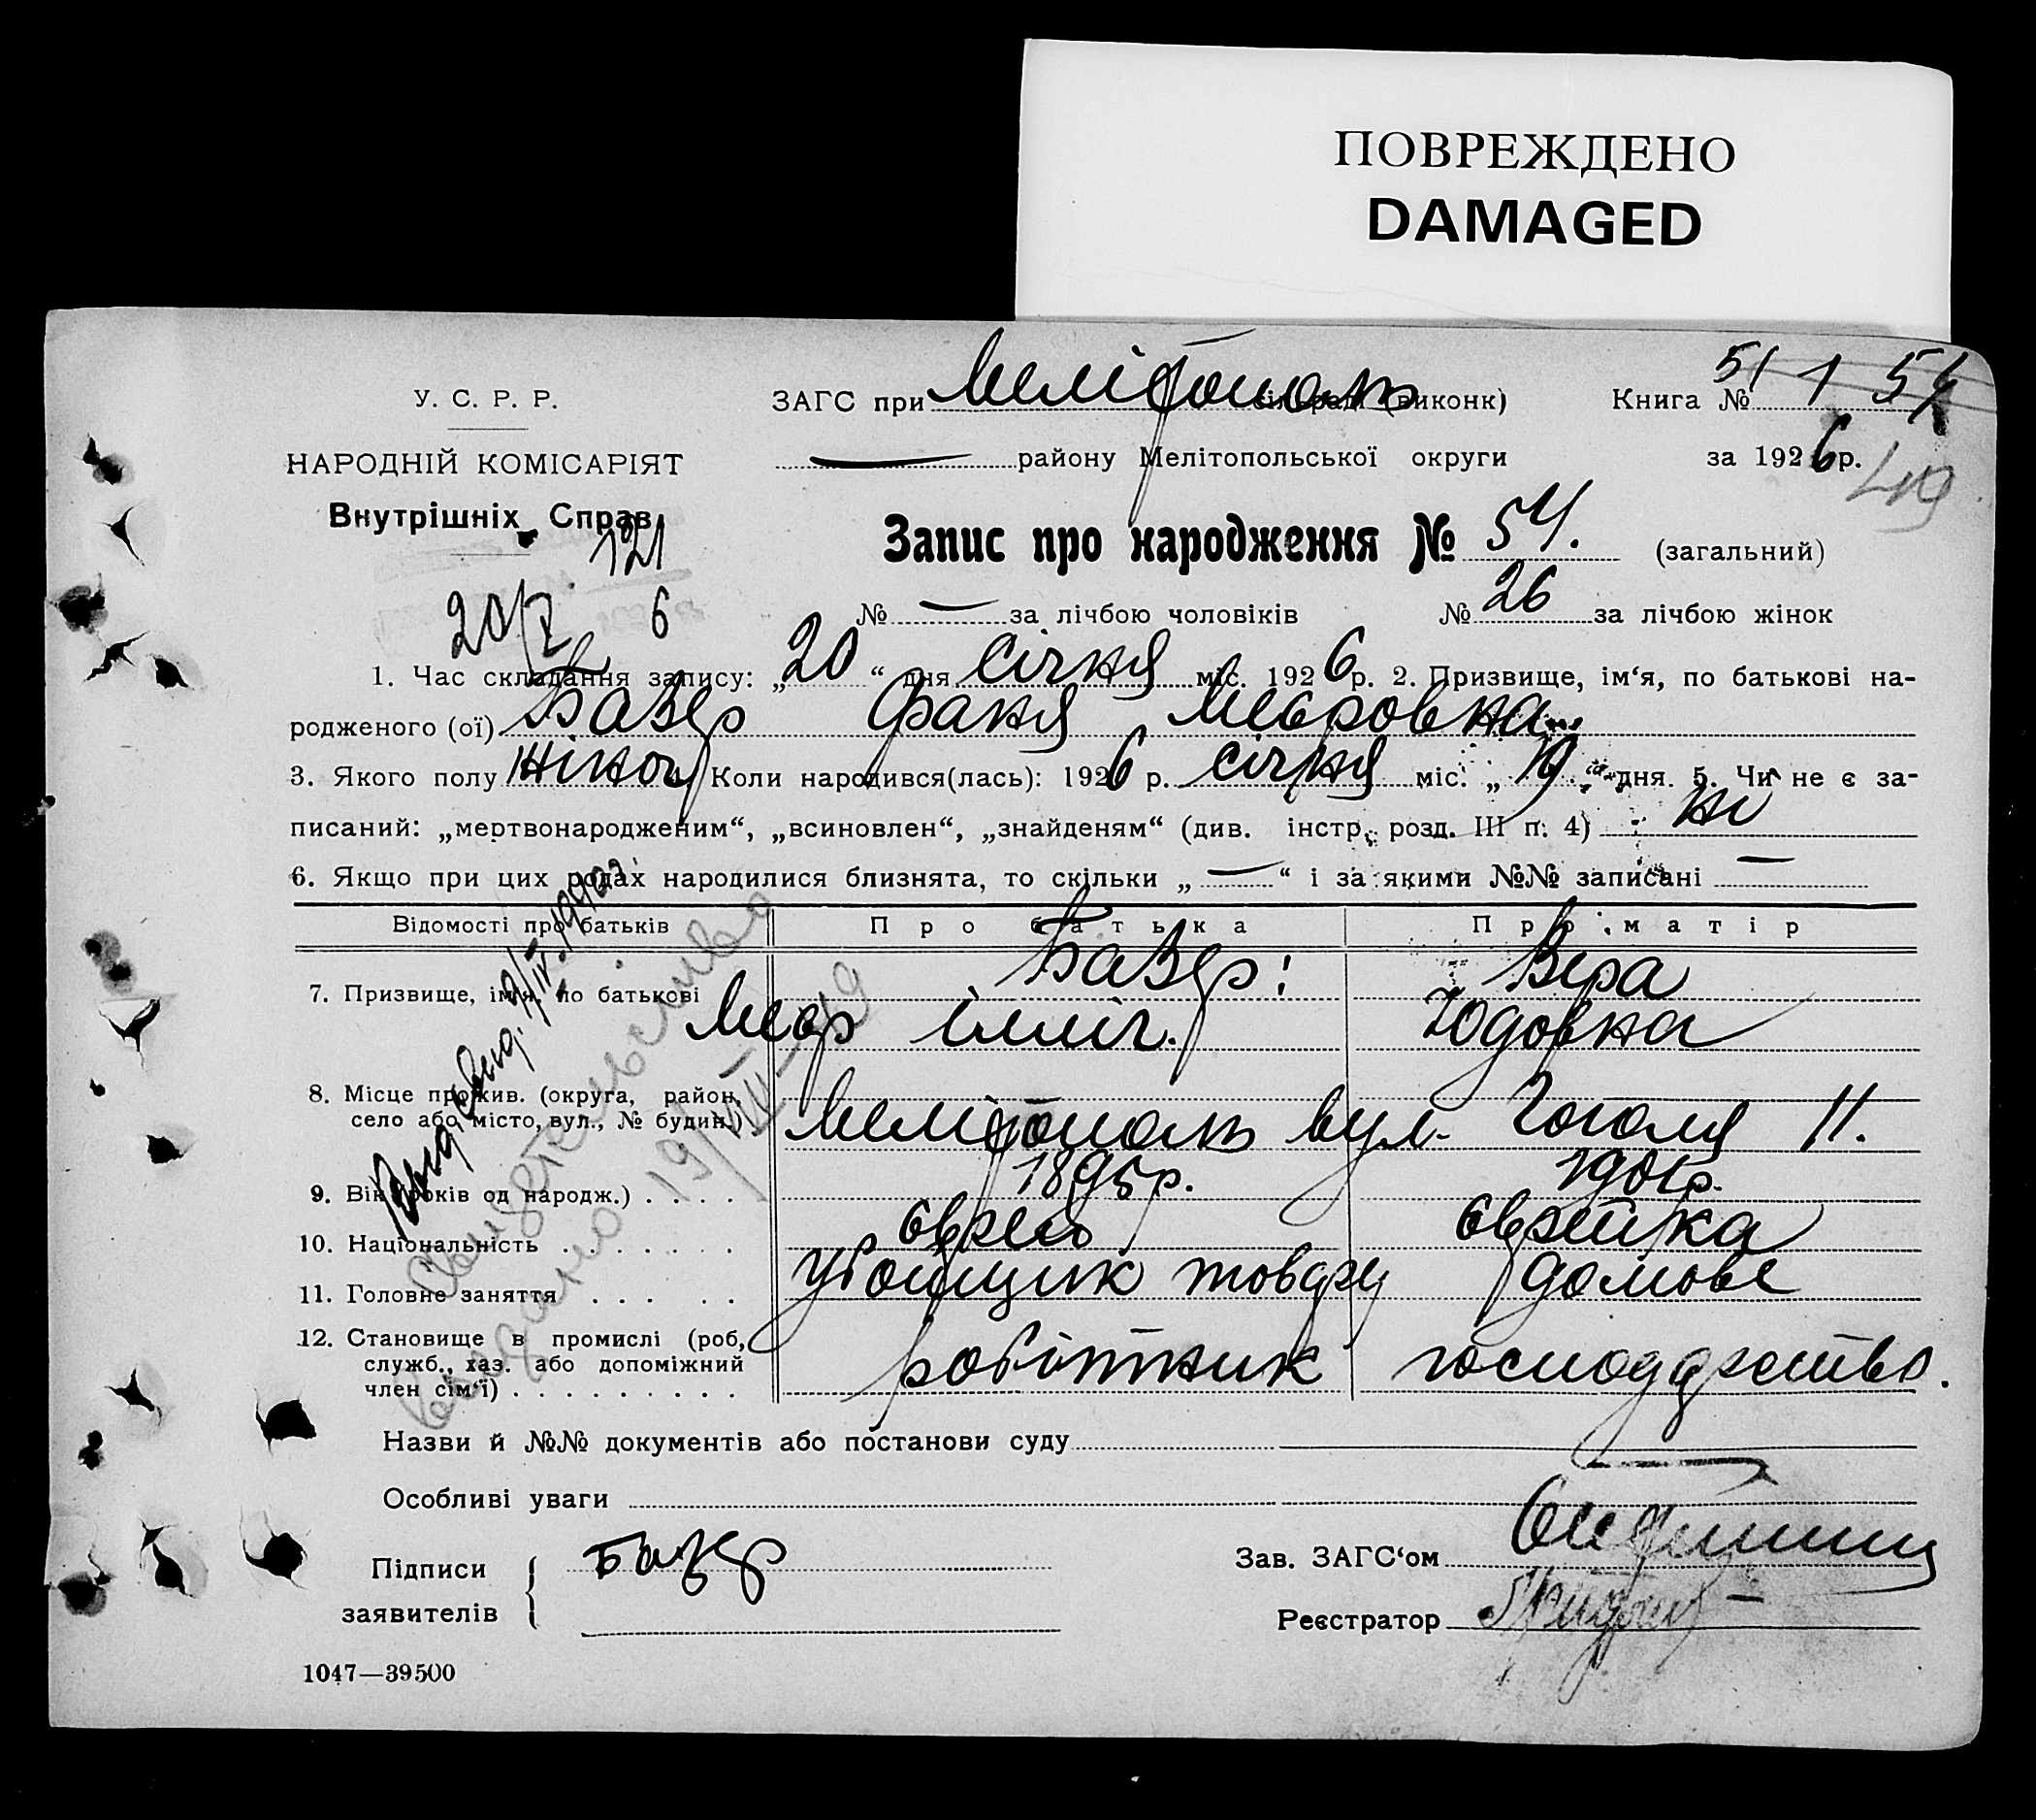 ПОВРЕЖДЕНО
DAMAGED
У. С. Р. Р.
НАРОДНІЙ КОМІСАРІЯТ
Внутрішніх Справ
121
20/I 6
ЗАГС при Мелітополь сільраді (виконк)
Книга № 51 1 54
району Мелітопольської округи
за 1926 р.
49
Запис про народження № 54. (загальний)
№ — за лічбою чоловіків № 26 за лічбою жінок
1. Час складання запису: „20“ дня січня міс. 1926 р. 2. Призвище, ім‘я, по батькові на-
родженого (ої) Базер Фаня Меєровна
3. Якого полу жіноч 4. Коли народився(лась): 1926 р. січня міс. „19“ дня. 5. Чи не є за-
писаний: „мертвонародженим“, „всиновлен“, „знайденям“ (див. інстр. розд. III п. 4) ні
6. Якщо при цих родах народилися близнята, то скільки „—“ і за якими №№ записані —
Відомості про батьків Про батька Про матір
7. Призвище, ім‘я, по батькові Базер: Вера
Меєр ілліч. Юдовна
8. Місце прожив. (округа, район,
село або місто, вул., № будин.) Мелітополь вул. Гоголя 11.
9. Вік (років од народж.) . . . . 1895р. 1901р.
10. Національність . . . . . . . єврей єврейка
11. Головне заняття . . . . . убойщик товару домове
12. Становище в промислі (роб,
служб., хаз. або допоміжний
член сім‘ї) . . . . . . . . . . робітник господарство.
Свидетельство
выдано 19/VIII 49
Назви й №№ документів або постанови суду
Особливі уваги
Підписи
заявителів
Базер
Зав. ЗАГС‘ом
Реєстратор
1047—39500